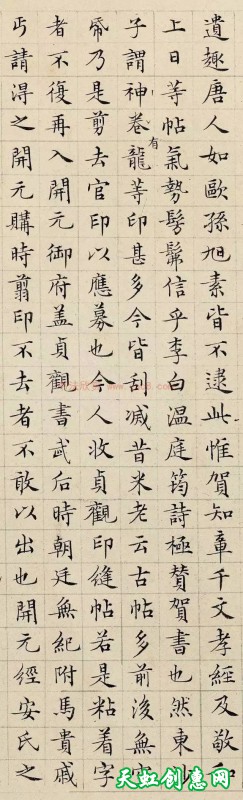 遺趣唐人如歐孫旭素皆不逮此惟賀知章千文孝經及敬和
上日等帖氣勢髣髴信乎李白溫庭筠詩極贊賀書也然東沙
子謂神卷有龍等印甚多今皆刮滅昔米老云古帖多前後無空
帋乃是剪去官印以應募也今人收貞觀印縫帖若是粘着字
者不復再入開元御府蓋貞觀書武后時朝廷無紀附馬貴戚
丐請得之開元購時剪印不去者不敢以出也開元經安氏之
天虹创意网